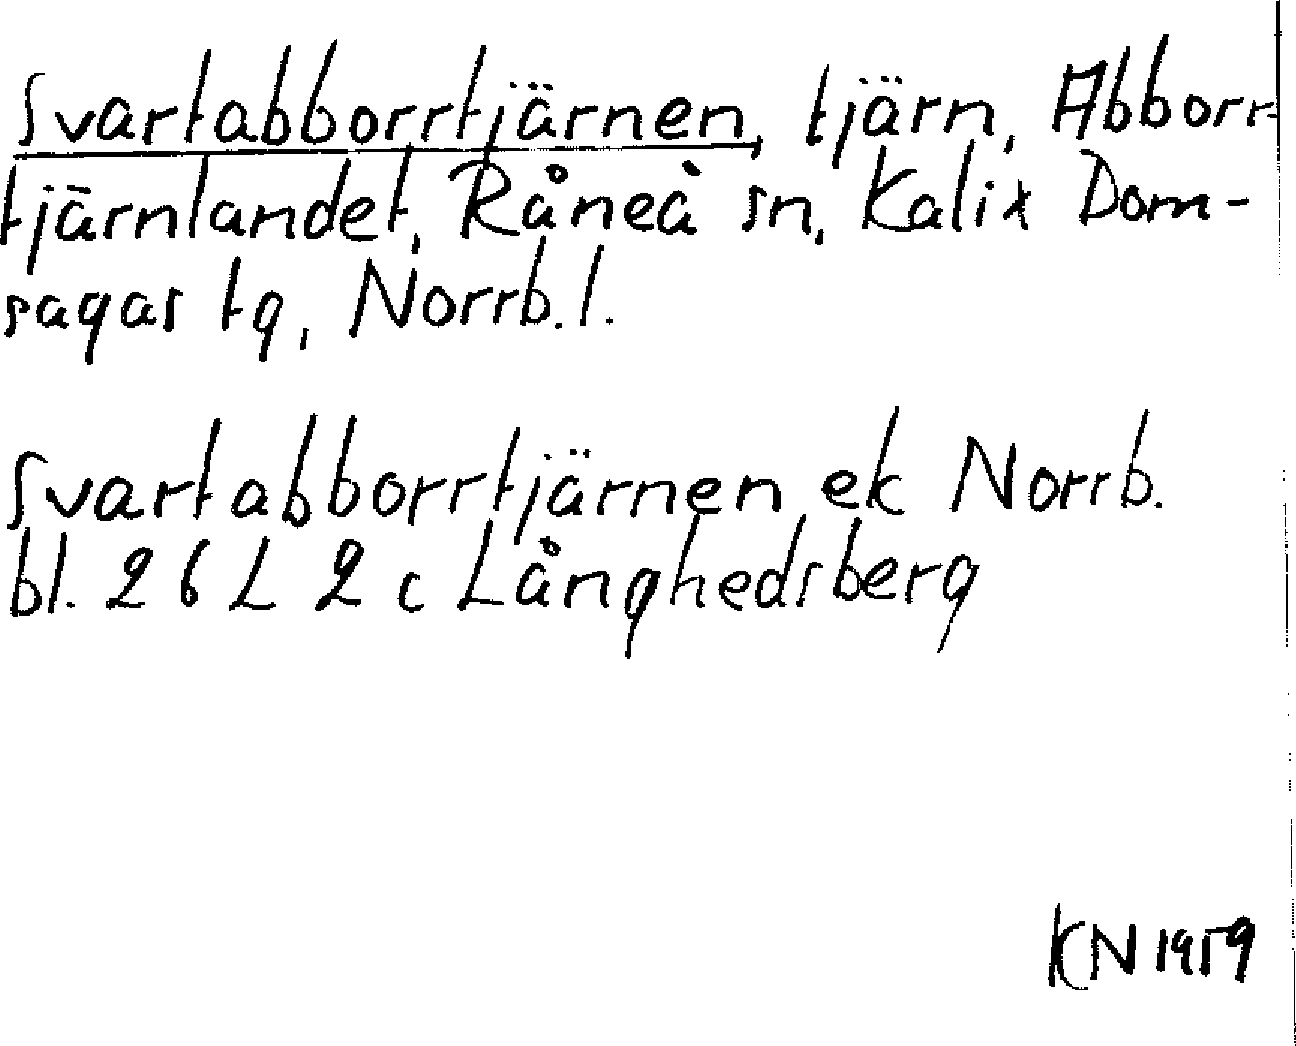 Svartabborrtjärnen, tjärn, Abborr-
tjärnlandet, Råneå sn, Kalix Dom-
sagas tg, Norrb. l.
Svartabborrtjärnen ek Norrb.
bl. 26 L 2 c Långhedsberg
KN 1959